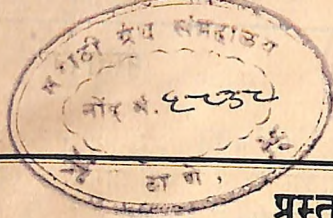 मराठी ग्रंथ संग्रहालय
नोंद नं.
ठाणे,
प्रस्त